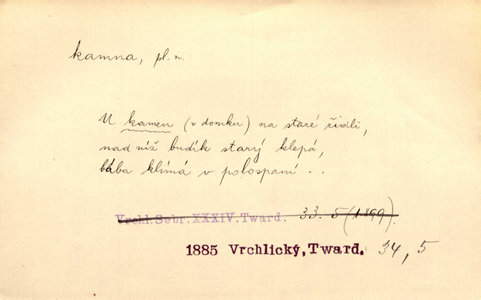 kamna, pl. n.
U kamen (v domku) na staré židli,
nad níž budík starý klepá,
bába klímá v polospaní . .
Vrchl. Sebr. XXXIV. Tward. 33. 5 (1899).
1885 Vrchlický, Tward. 34, 5